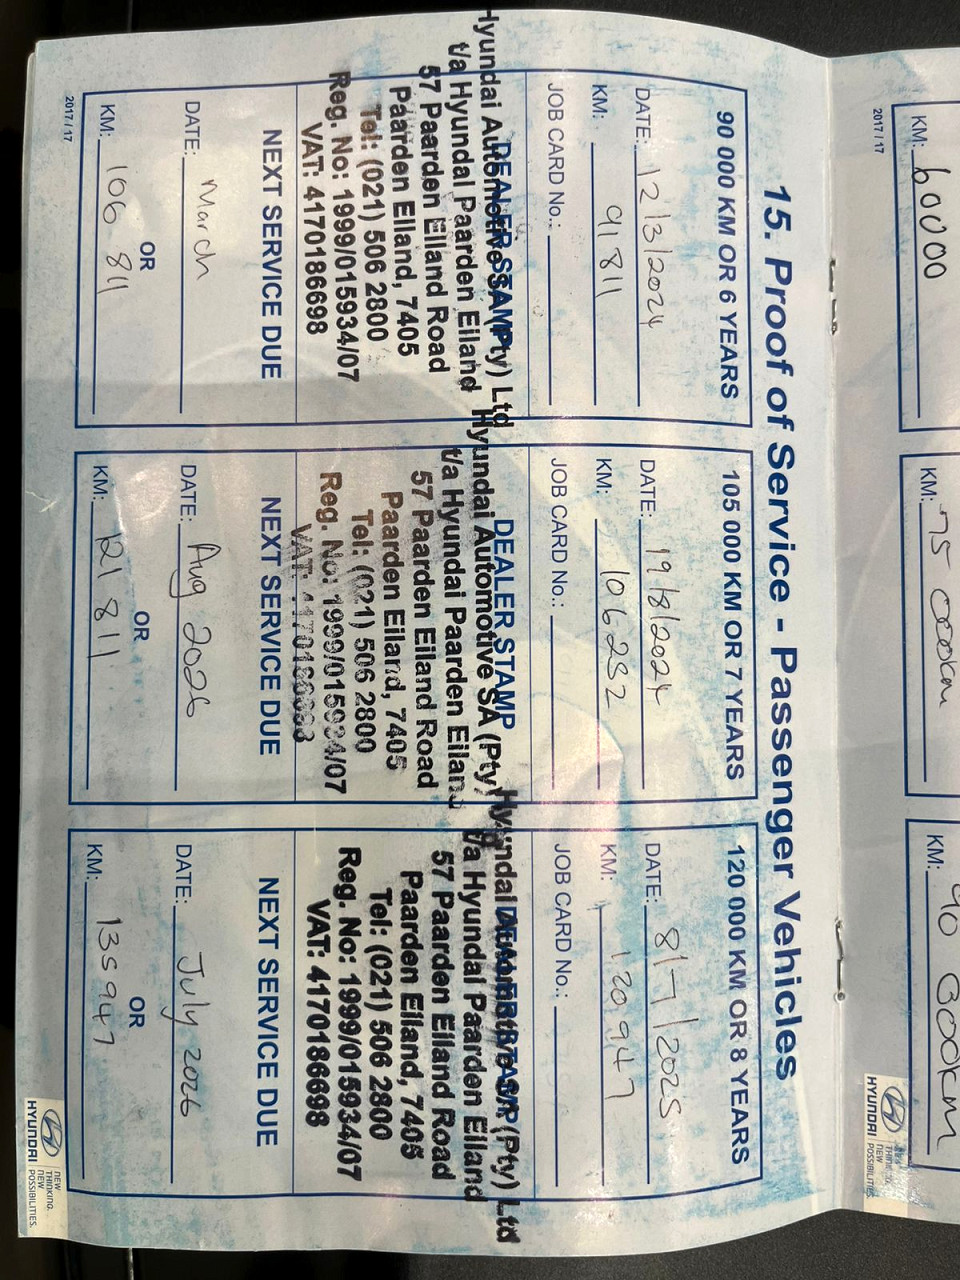 15. Proof of Service - Passenger Vehicles
90 000 KM OR 6 YEARS
DATE: 12/3/2024
KM: 91 811
JOB CARD No.:
DEALER STAMP
Hyundai Automotive SA (Pty) Ltd
t/a Hyundai Paarden Eiland
57 Paarden Eiland Road
Paarden Eiland, 7405
Tel: (021) 506 2800
Reg. No: 1999/015934/07
VAT: 4170186698
NEXT SERVICE DUE
DATE: March
OR
KM: 106 811
2017 / 17
105 000 KM OR 7 YEARS
DATE: 19/8/2024
KM: 106 252
JOB CARD No.:
DEALER STAMP
Hyundai Automotive SA (Pty)
t/a Hyundai Paarden Eiland
57 Paarden Eiland Road
Paarden Eiland, 7405
Tel: (021) 506 2800
Reg. No: 1999/015934/07
VAT:
NEXT SERVICE DUE
DATE: Aug 2026
OR
KM: 121 811
120 000 KM OR 8 YEARS
DATE: 8/7/2025
KM: 120947
JOB CARD No.:
DEALER STAMP
Hyundai Automotive SA (Pty) Ltd
t/a Hyundai Paarden Eiland
57 Paarden Eiland Road
Paarden Eiland, 7405
Tel: (021) 506 2800
Reg. No: 1999/015934/07
VAT: 4170186698
NEXT SERVICE DUE
DATE: July 2026
OR
KM: 135947
HYUNDAI
NEW
THINKING.
NEW
POSSIBILITIES.
KM: 60000
2017 / 17
KM: 75 000km
KM: 90 000km
HYUNDAI
NEW
POSSIBILITIES.